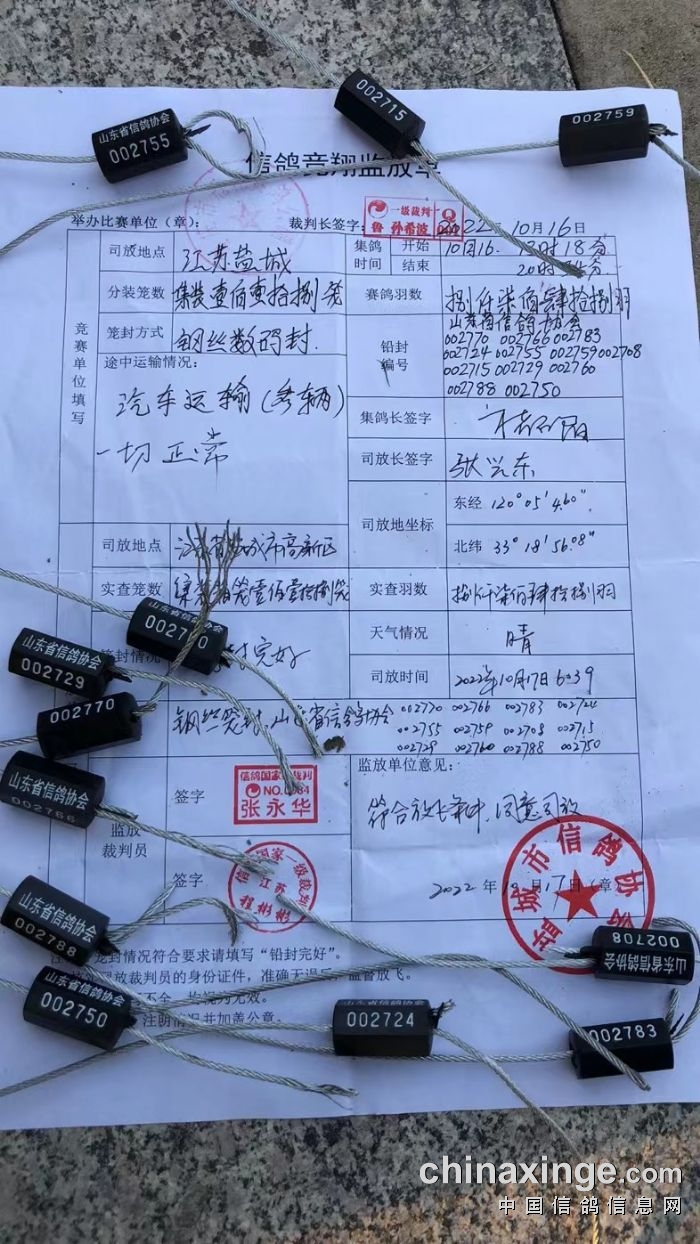 002715
002759
山东省信鸽协会
002755
信鸽竞翔监放单
举办比赛单位（章）：
裁判长签字：
一级裁判
鲁 孙希波
2022年10月16日
竞赛单位填写
司放地点
江苏盐城
集鸽时间
开始
10月16.
18分
结束
20时
分装笼数
集装壹佰壹拾捌笼
赛鸽羽数
捌仟柒佰肆拾捌羽
笼封方式
钢丝数码封.
铅封编号
山东省信鸽协会
002770 002766 002783
002724 002755 002759 002708
002715 002729 002760
002788 002750
途中运输情况：
汽车运输(多辆)
一切正常
集鸽长签字
司放长签字
张兴东
司放地坐标
东经 120°05′4.60″
北纬 33°18′56.08″
司放地点
江苏省盐城市高新区
实查笼数
集装箱笼壹佰壹拾捌笼
实查羽数
捌仟柒佰肆拾捌羽
笼封情况
完好
天气情况
晴
司放时间
2022年10月17日 6:39
钢丝笼封.山东省信鸽协会
002770 002766 002783 002724
002755 002759 002708 002715
002729 002760 002788 002750
监放裁判员
签字
信鸽国家
裁判
张永华
签字
国家一级裁判
江苏
程彬彬
监放单位意见：
符合放飞条件，同意司放
2022年10月17日（章）
盐城市信鸽协会
笼封情况符合要求请填写“铅封完好”。
放裁判员的身份证件，准确无误后，监督放飞。
不全，均视为无效。
注明情况并加盖公章。
山东省信鸽协会
002729
002770
山东省信鸽协会
002766
山东省信鸽协会
002788
山东省信鸽协会
002750
002724
002708
山东省信鸽协会
002783
chinaxinge.com
中国信鸽信息网